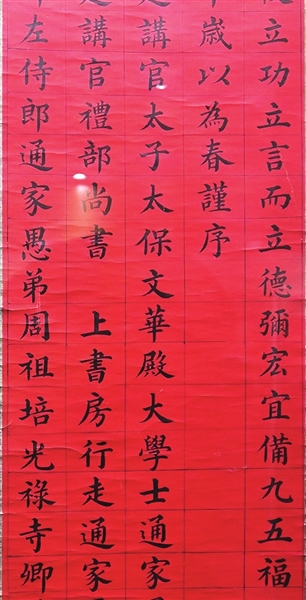 立功立言而立德彌宏宜備九五福
歲以為春謹序
講官太子太保文華殿大學士通家
講官禮部尚書 上書房行走通家
左侍郎通家愚弟周祖培光祿寺卿